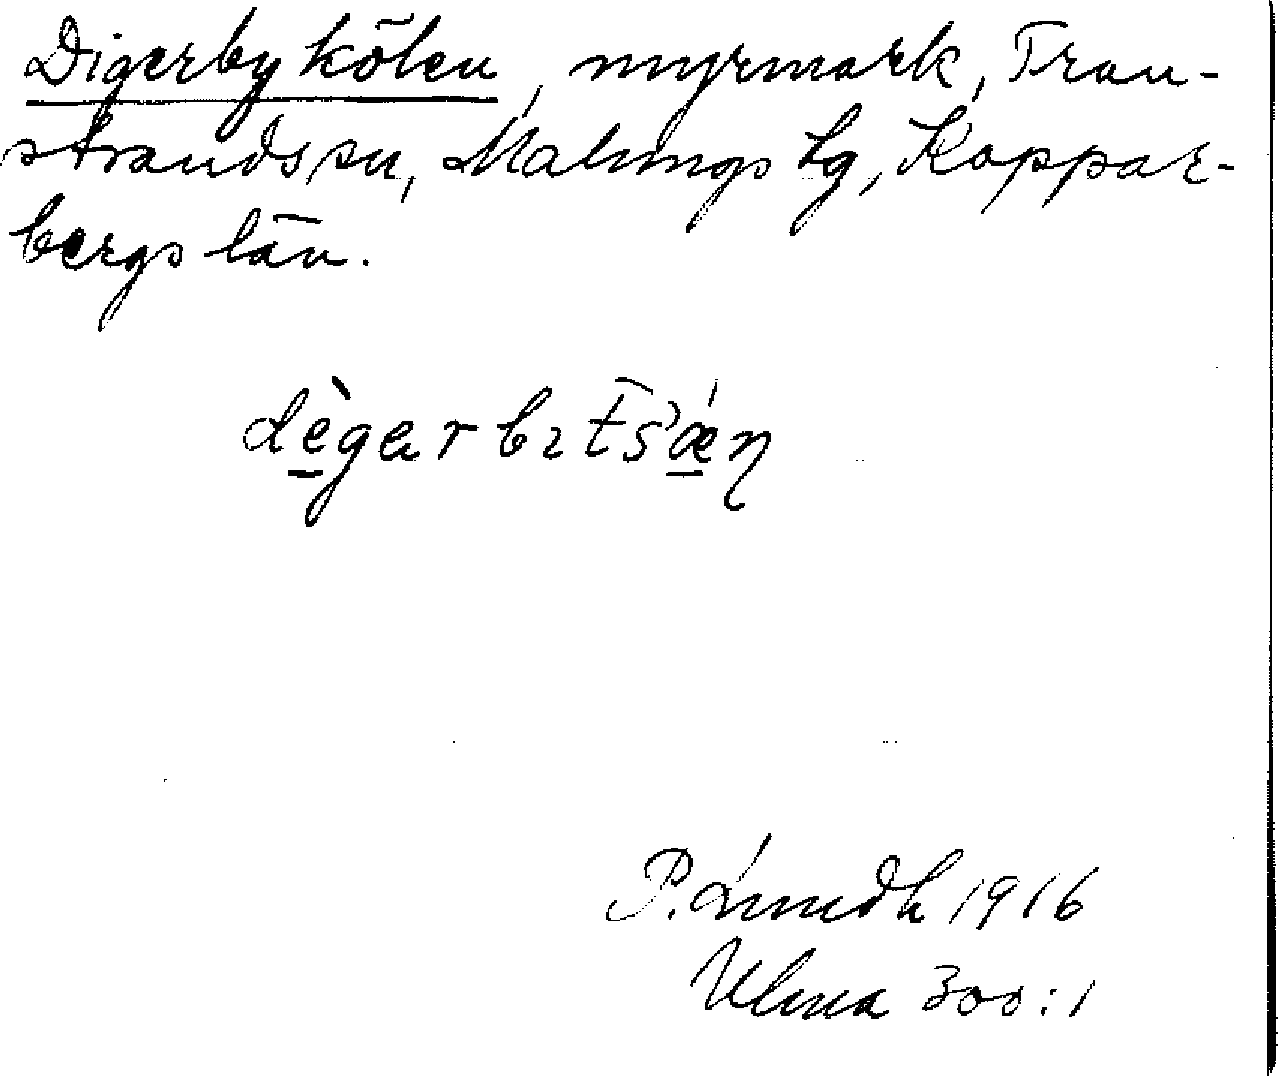 Digerbykölen, myrmark, Tran-
strands sn, Malungs tg, Koppar-
bergs län.
dègarbɩtsǽŋ
P. Lindh 1916
Ulma 300:1